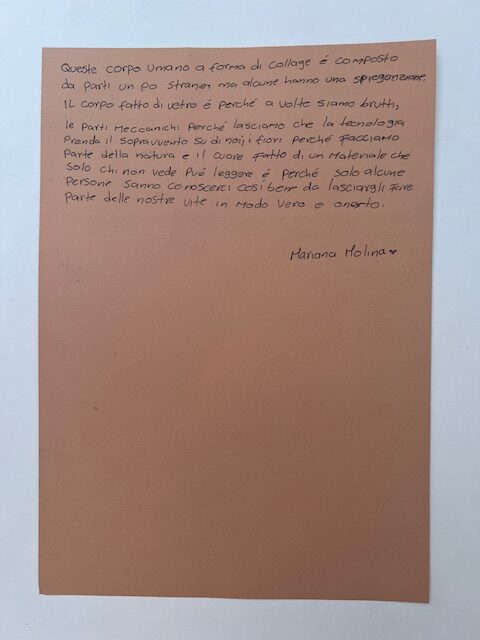 Queste corpo umano a forma di collage é composto
da parti un po strane, ma alcune hanno una spieganzione.
Il corpo fatto di vetro é perché a volte siamo brutti,
le parti meccanichi perché lasciamo che la tecnologia
prenda il sopravvento su di noi, i fiori perché facciamo
parte della natura e il cuore fatto di un materiale che
solo chi non vede pué leggere é perché solo alcune
persone sanno conoscerci cosi bene da lasciargli fare
parte delle nostre vite in modo vero e onesto.
Mariana Molina